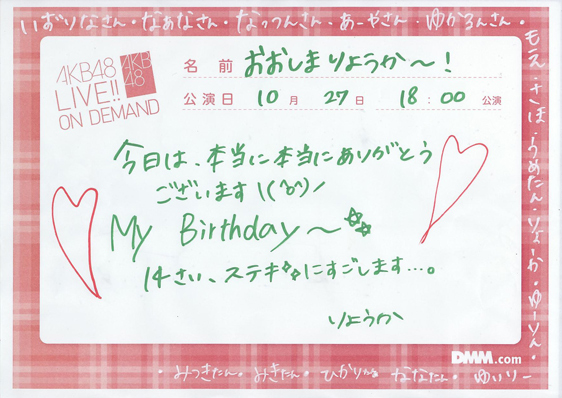 いずりなさん・なぁなさん・なっつんさん・あーやさん・ゆかるんさん・
AKB48
LIVE!!
ON DEMAND
AKB
48
名前 おおしまりょうか〜!
公演日 10月 27日 18:00 公演
今日は、本当に本当にありがとう
ございます\(^o^)/
My Birthday〜☆☆
14さい、ステキにすごします…。
りょうか
もえ・さほ・うめたん・りょーか・ゆーりん・
DMM.com
・みっきたん・みきたん・ひかりたん ななたん・ゆいりー